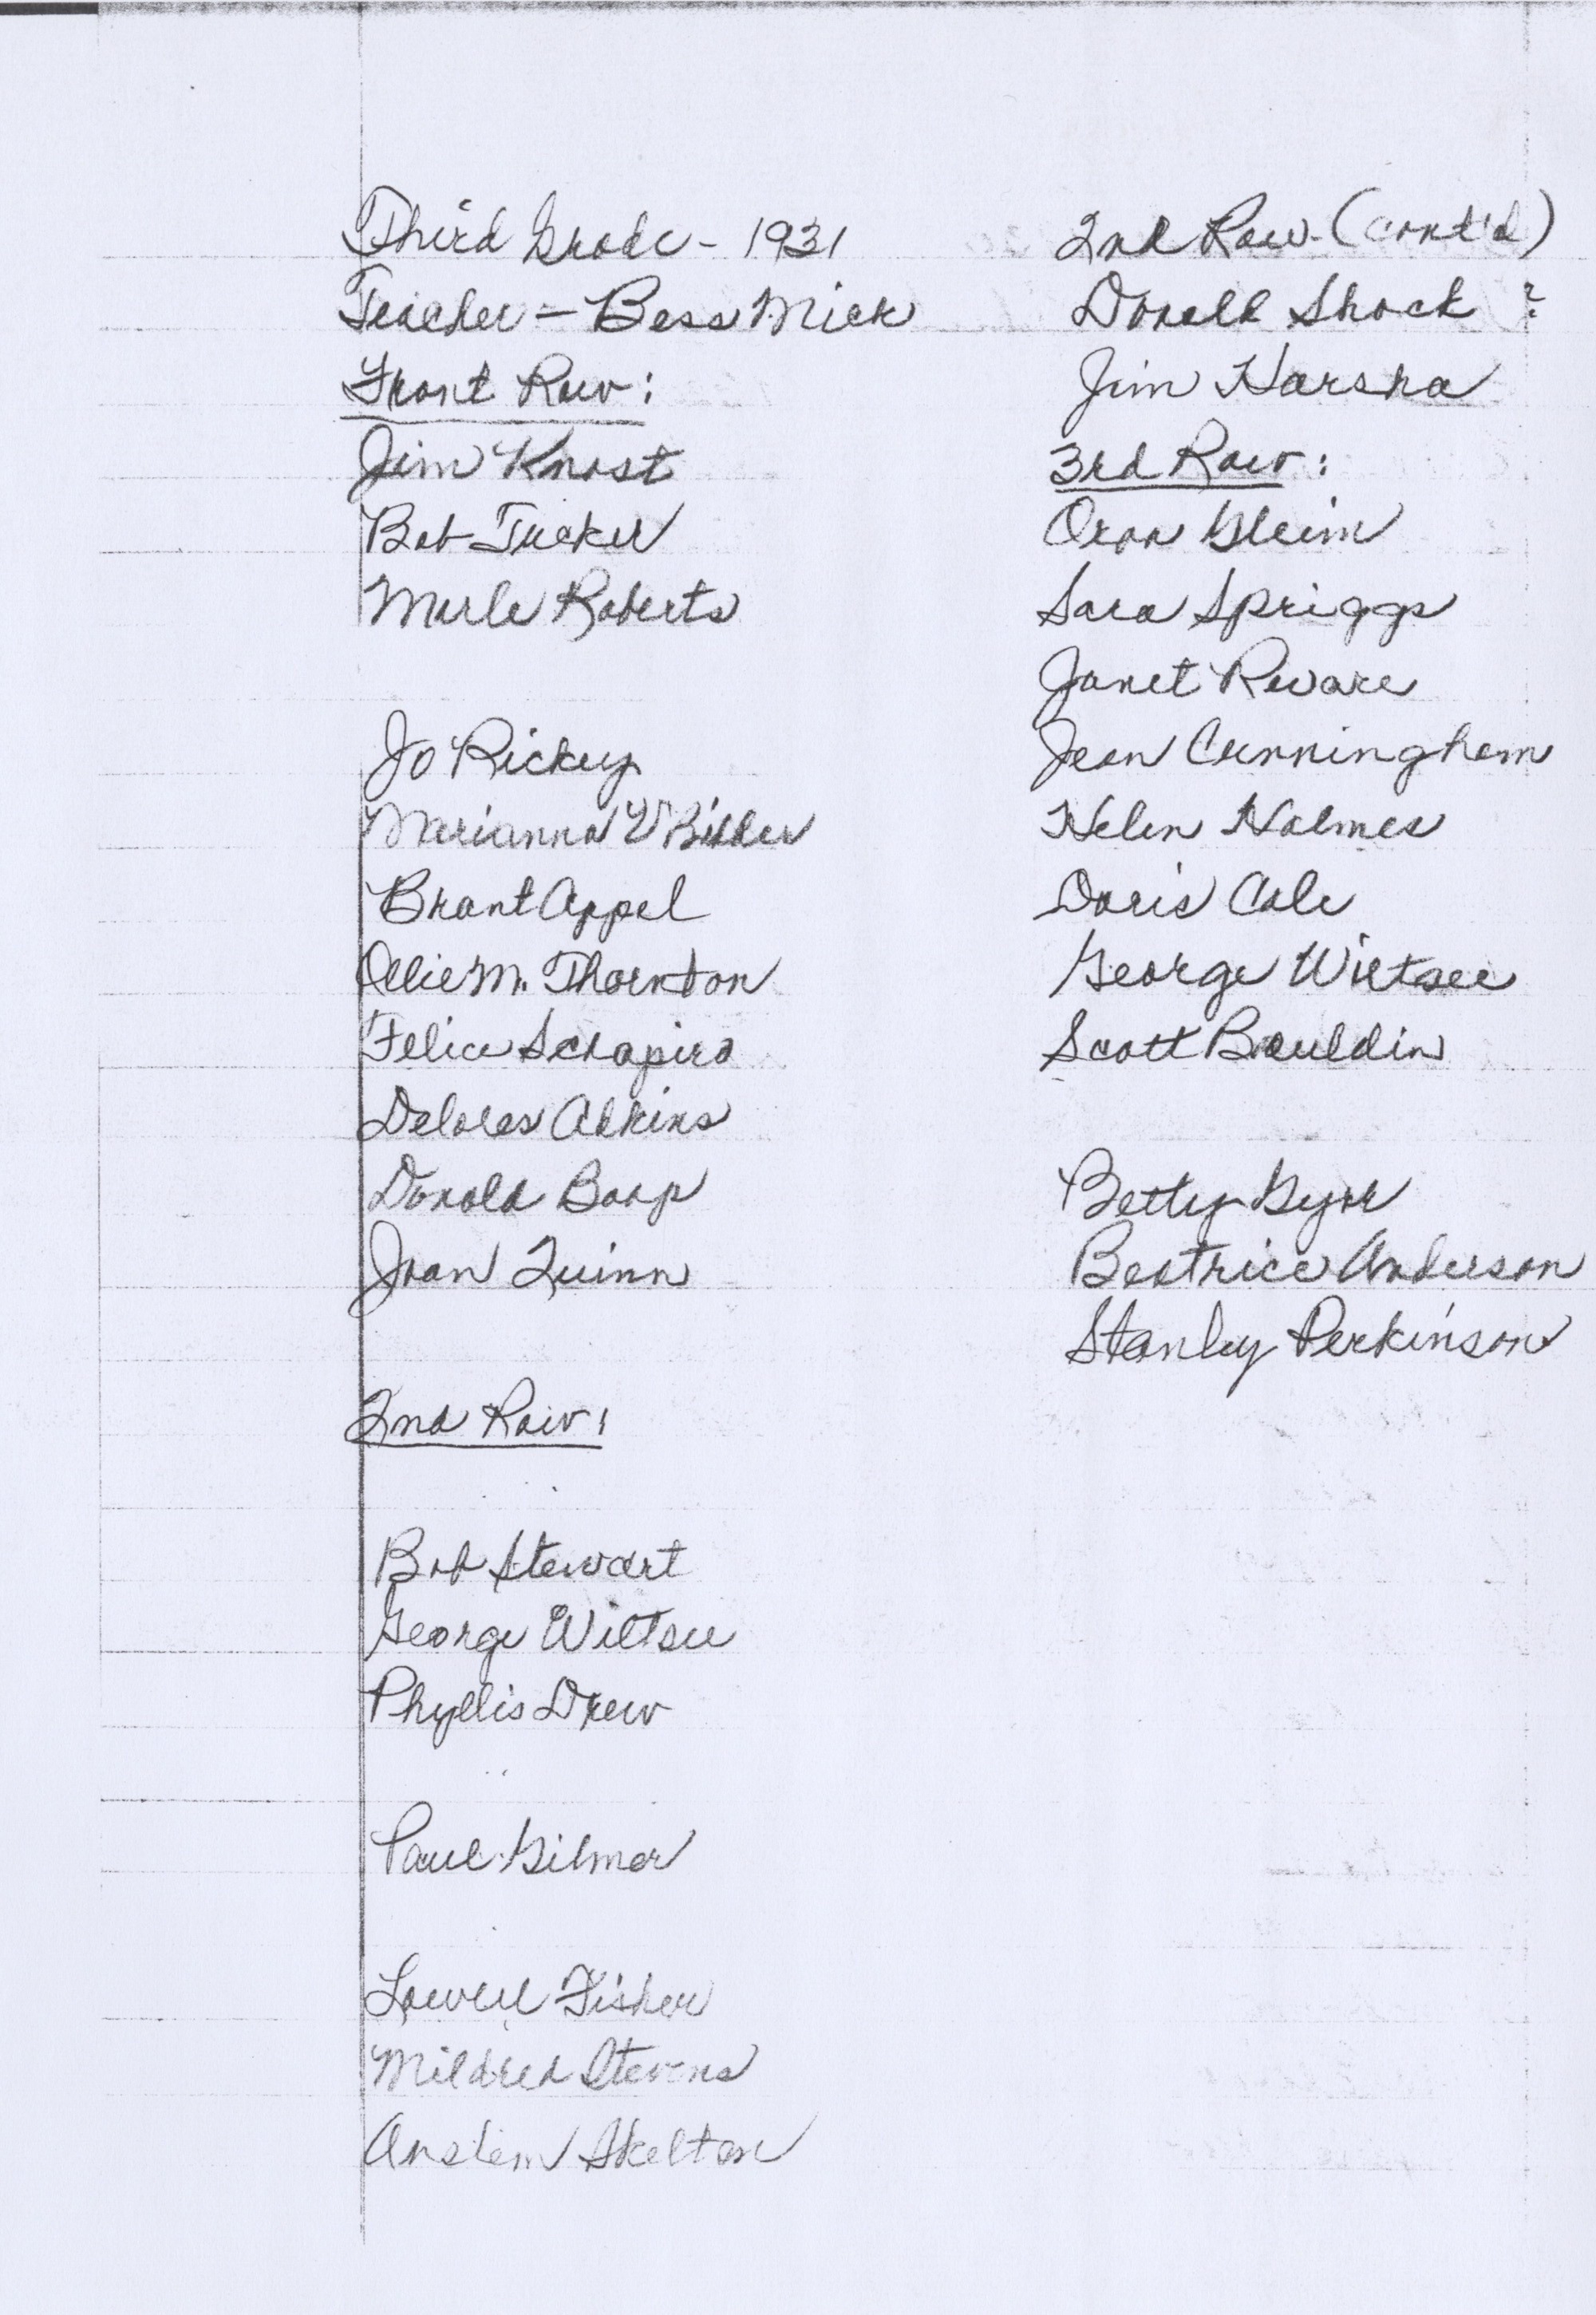 Third Grade - 1931
Teacher - Bess Mick
Front Row:
Jim Knost
Bob Tucker
Merle Roberts
Jo Rickey
Marianna V
Brant Appel
Ollie M. Thornton
Felice Schapiro
Delores Adkins
Donald Boop
Joan Quinn
2nd Row:
Bob Stewart
George Wiltsee
Phyllis Drew
Paul Gilmer
Lowell Fisher
Mildred Stevens
Anslem Skelton
2nd Row (cont'd)
Donald Shock ?
Jim Harsha
3rd Row:
Oran Gleim
Sara Spriggs
Janet Reware
Jean Cunningham
Helen Holmes
Doris Cole
George Wiltsee
Scott Bouldin
Betty
Beatrice Anderson
Stanley Perkinson